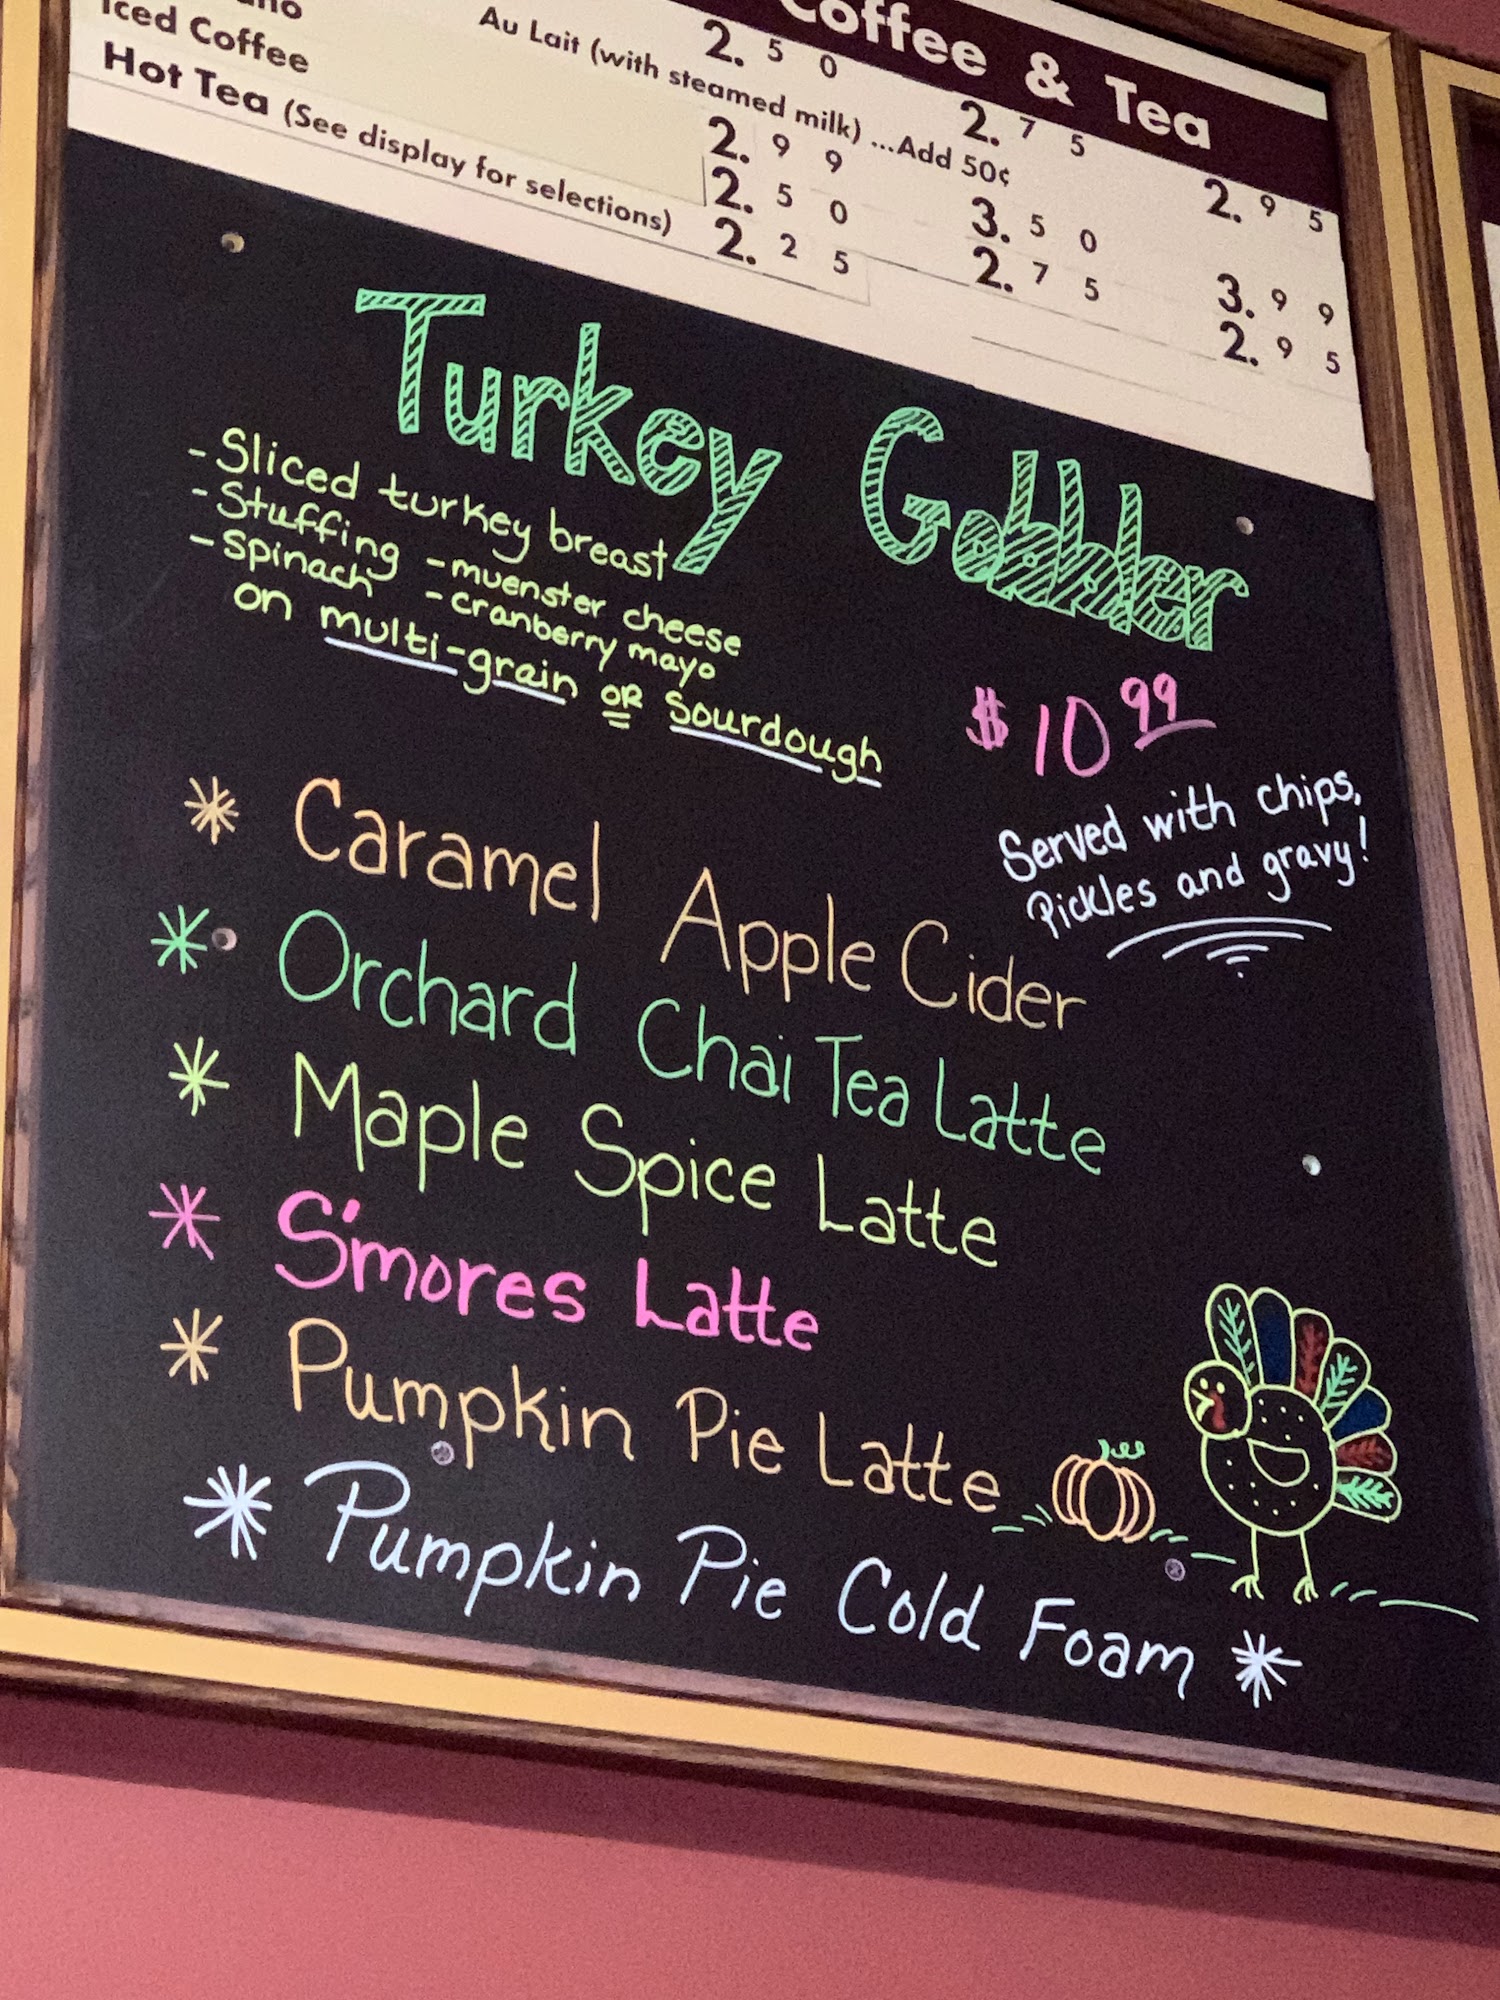 Coffee & Tea
2.50 2.75 2.95
Au Lait (with steamed milk) ...Add 50¢
2.99 3.50 3.99
Iced Coffee 2.50 2.75 2.95
Hot Tea (See display for selections) 2.25
Turkey Gobbler
- Sliced turkey breast
- Stuffing - muenster cheese
- Spinach - cranberry mayo
on multi-grain OR Sourdough
$10.99
Served with chips,
Pickles and gravy!
* Caramel Apple Cider
* Orchard Chai Tea Latte
* Maple Spice Latte
* S'mores Latte
* Pumpkin Pie Latte
* Pumpkin Pie Cold Foam *